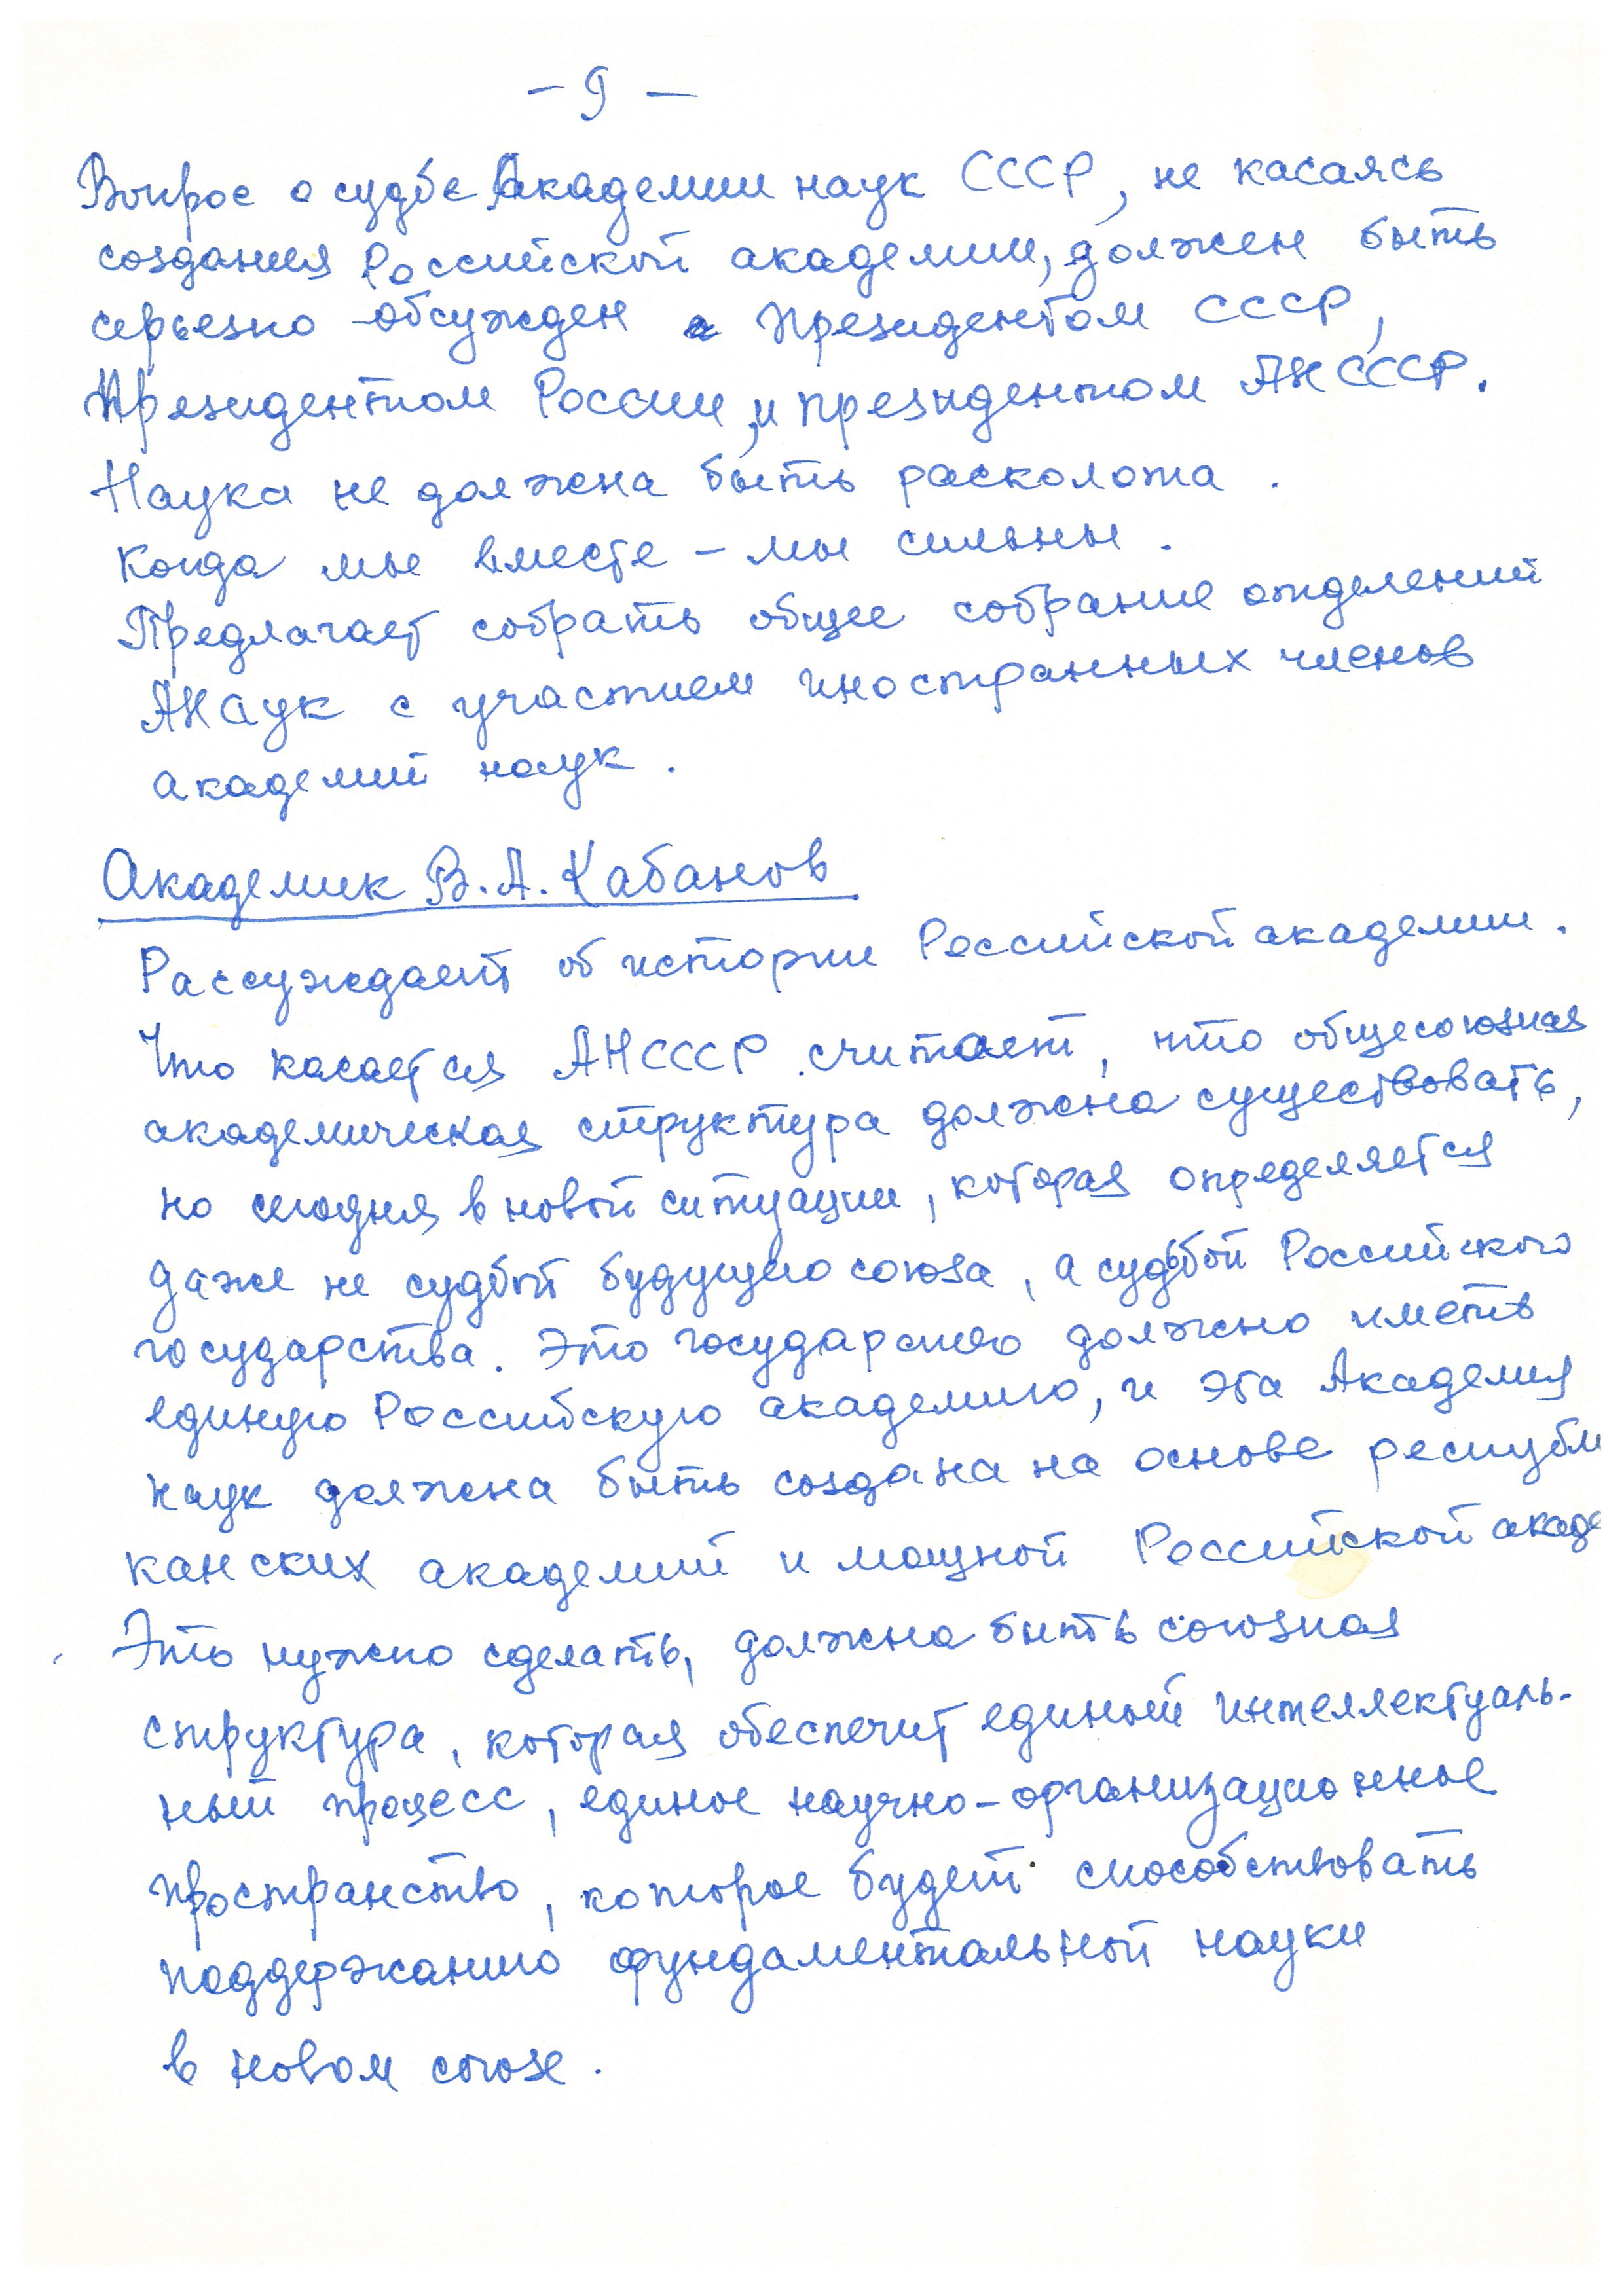 – 9 –
Вопрос о судбе Академии наук СССР, не касаясь
создания Российской академии, должен быть
серьезно обсужден с Президентом СССР,
Президентом России, и президентом АН СССР.
Наука не должна быть расколота.
Когда мы вместе – мы сильны.
Предлагает собрать общее собрание отделений
АНаук с участием иностранных членов
академий наук.
Академик В.А. Кабанов
Рассуждает об истории Российской академии.
Что касается АН СССР считает, что общесоюзная
академическая структура должна существовать,
но сегодня в новой ситуации, которая определяется
даже не судбой будущего союза, а судьбой Российского
государства. Это государство должно иметь
единую Российскую академию, и эта Академия
наук должна быть создана на основе республи
канских академий и мощной Российской акаде
Это нужно сделать, должна быть союзная
структура, которая обеспечит единый интеллектуаль-
ный процесс, единое научно-организационное
пространство, которое будет способствовать
поддержанию фундаментальной науки
в новом союзе.